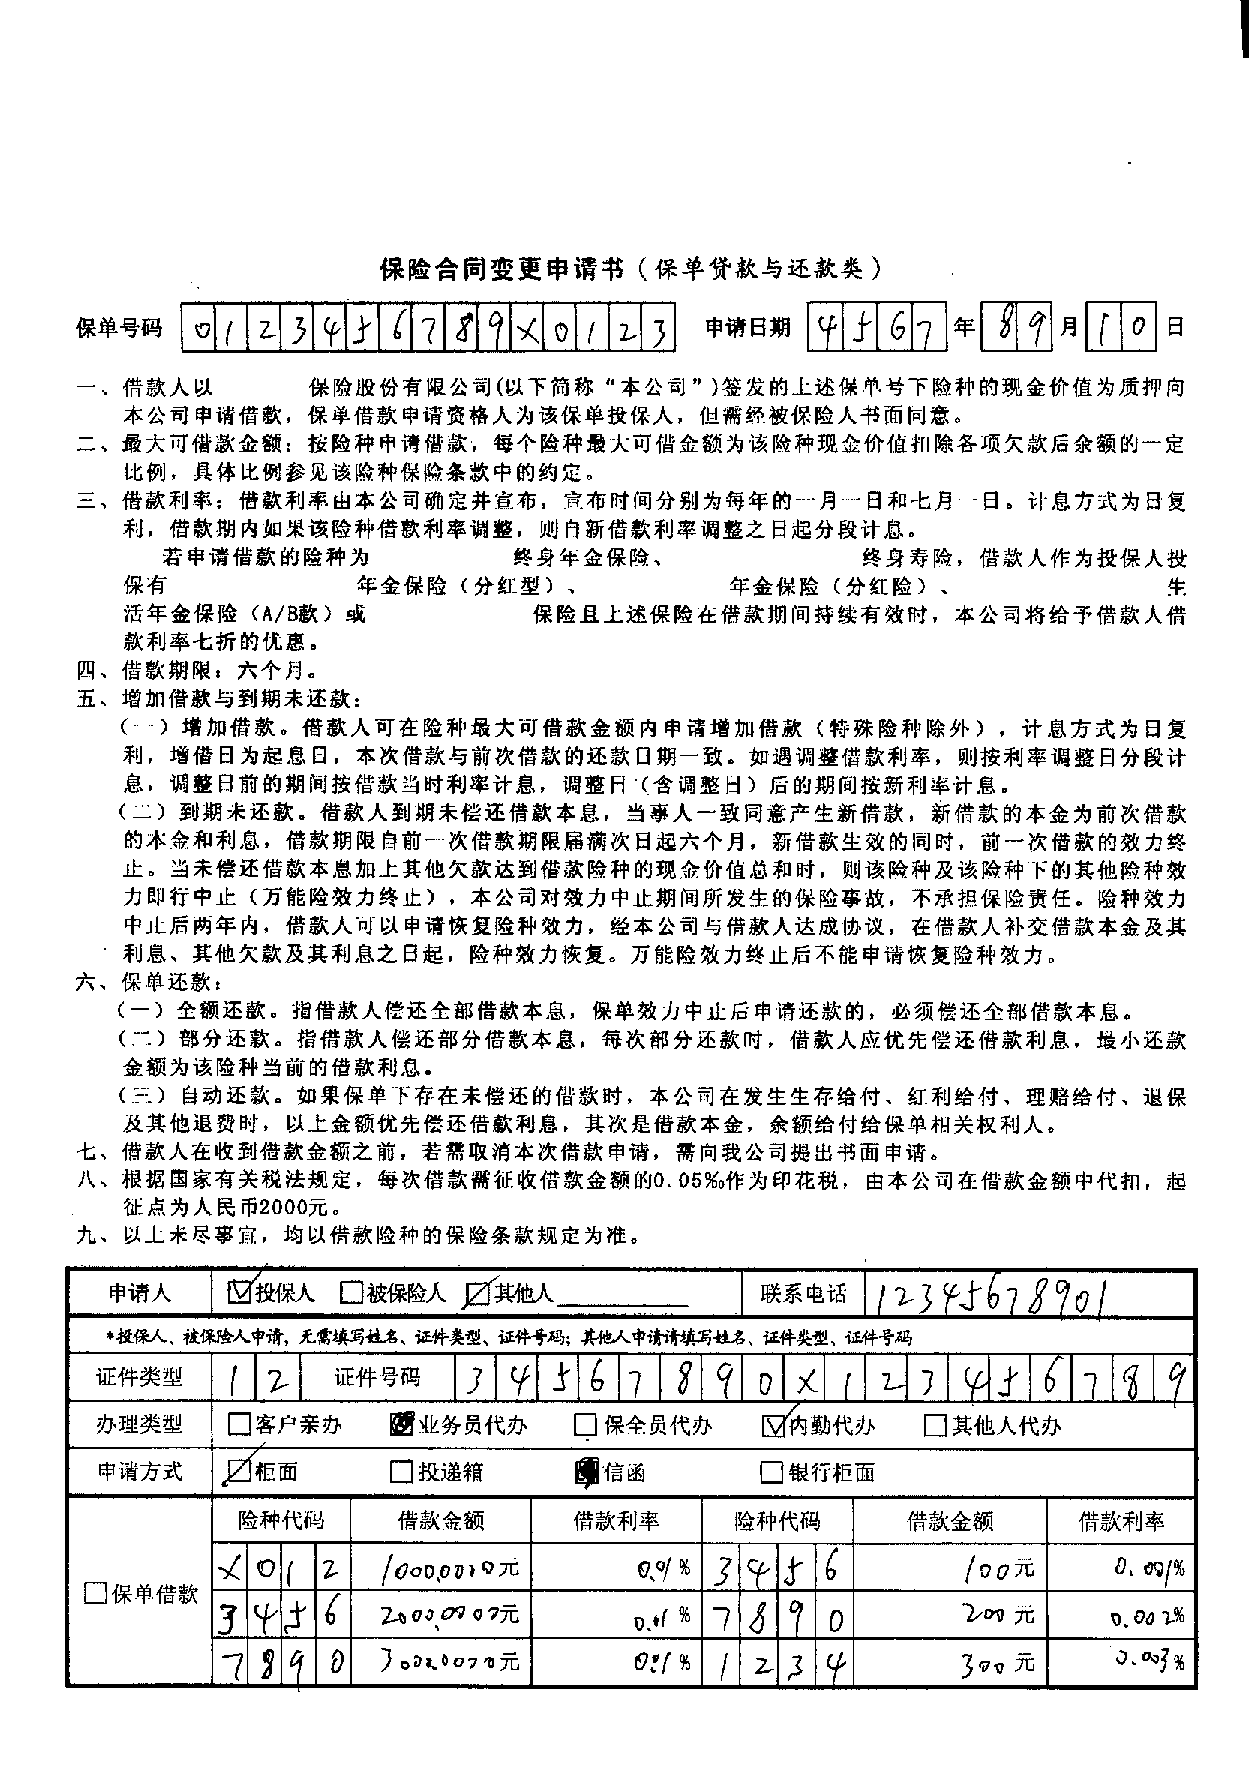 保险合同变更申请书（保单贷款与还款类）
保单号码 0123456789X0123 申请日期 4567年89月10日
一、借款人以 保险股份有限公司(以下简称“本公司”)签发的上述保单号下险种的现金价值为质押向
本公司申请借款，保单借款申请资格人为该保单投保人，但需经被保险人书面同意。
二、最大可借款金额：按险种申请借款，每个险种最大可借金额为该险种现金价值扣除各项欠款后余额的一定
比例，具体比例参见该险种保险条款中的约定。
三、借款利率：借款利率由本公司确定并宣布，宣布时间分别为每年的一月一日和七月一日。计息方式为日复
利，借款期内如果该险种借款利率调整，则自新借款利率调整之日起分段计息。
若申请借款的险种为 终身年金保险、 终身寿险，借款人作为投保人投
保有 年金保险（分红型）、 年金保险（分红险）、 生
活年金保险（A/B款）或 保险且上述保险在借款期间持续有效时，本公司将给予借款人借
款利率七折的优惠。
四、借款期限：六个月。
五、增加借款与到期未还款：
（一）增加借款。借款人可在险种最大可借款金额内申请增加借款（特殊险种除外），计息方式为日复
利，增借日为起息日，本次借款与前次借款的还款日期一致。如遇调整借款利率，则按利率调整日分段计
息，调整日前的期间按借款当时利率计息，调整日（含调整日）后的期间按新利率计息。
（二）到期未还款。借款人到期未偿还借款本息，当事人一致同意产生新借款，新借款的本金为前次借款
的本金和利息，借款期限自前一次借款期限届满次日起六个月，新借款生效的同时，前一次借款的效力终
止。当未偿还借款本息加上其他欠款达到借款险种的现金价值总和时，则该险种及该险种下的其他险种效
力即行中止（万能险效力终止），本公司对效力中止期间所发生的保险事故，不承担保险责任。险种效力
中止后两年内，借款人可以申请恢复险种效力，经本公司与借款人达成协议，在借款人补交借款本金及其
利息、其他欠款及其利息之日起，险种效力恢复。万能险效力终止后不能申请恢复险种效力。
六、保单还款：
（一）全额还款。指借款人偿还全部借款本息，保单效力中止后申请还款的，必须偿还全部借款本息。
（二）部分还款。指借款人偿还部分借款本息，每次部分还款时，借款人应优先偿还借款利息，最小还款
金额为该险种当前的借款利息。
（三）自动还款。如果保单下存在未偿还的借款时，本公司在发生生存给付、红利给付、理赔给付、退保
及其他退费时，以上金额优先偿还借款利息，其次是借款本金，余额给付给保单相关权利人。
七、借款人在收到借款金额之前，若需取消本次借款申请，需向我公司提出书面申请。
八、根据国家有关税法规定，每次借款需征收借款金额的0.05‰作为印花税，由本公司在借款金额中代扣，起
征点为人民币2000元。
九、以上未尽事宜，均以借款险种的保险条款规定为准。
申请人 ☑投保人 □被保险人 ☑其他人 联系电话 12345678901
*投保人、被保险人申请，无需填写姓名、证件类型、证件号码；其他人申请请填写姓名、证件类型、证件号码
证件类型 12 证件号码 34567890X123456789
办理类型 □客户亲办 ■业务员代办 □保全员代办 ☑内勤代办 □其他人代办
申请方式 ☑柜面 □投递箱 ■信函 □银行柜面
险种代码 借款金额 借款利率 险种代码 借款金额 借款利率
X012 元 0.01% 3456 100元 0.001%
□保单借款 3456 元 0.01% 7890 200元 0.002%
7890 元 0.01% 1234 300元 0.003%